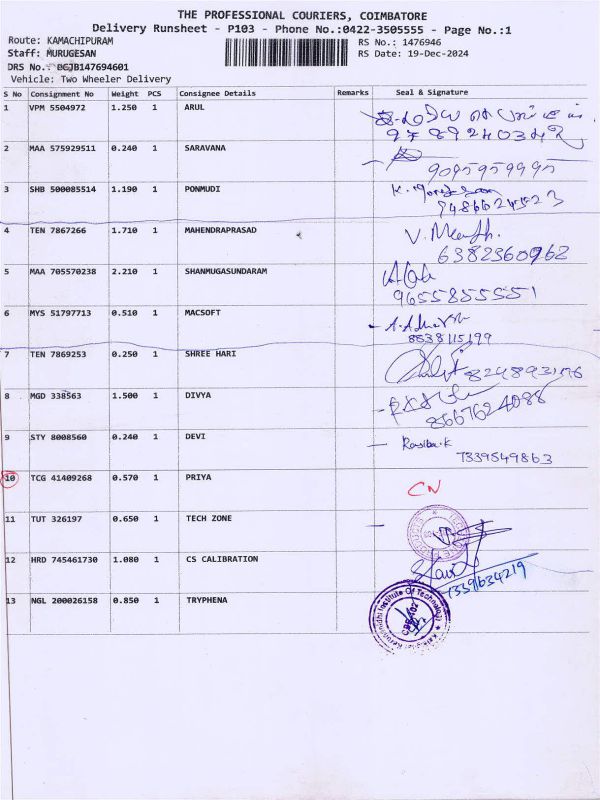 THE PROFESSIONAL COURIERS, COIMBATORE
Delivery Runsheet - P103 - Phone No.:0422-3505555 - Page No.:1
Route: KAMACHIPURAM RS No.: 1476946
Staff: MURUGESAN RS Date: 19-Dec-2024
DRS No.: BGJB147694601
Vehicle: Two Wheeler Delivery
S No Consignment No Weight PCS Consignee Details Remarks Seal & Signature
1 VPM 5504972 1.250 1 ARUL
9789240342
2 MAA 575929511 0.240 1 SARAVANA
9095959995
3 SHB 500085514 1.190 1 PONMUDI
9486624523
4 TEN 7867266 1.710 1 MAHENDRAPRASAD
6382360962
5 MAA 705570238 2.210 1 SHANMUGASUNDARAM
9655855551
6 MYS 51797713 0.510 1 MACSOFT
8838115199
7 TEN 7869253 0.250 1 SHREE HARI
8 MGD 338563 1.500 1 DIVYA
8667624088
9 STY 8008560 0.240 1 DEVI
7339549863
10 TCG 41409268 0.570 1 PRIYA CN
11 TUT 326197 0.650 1 TECH ZONE
12 HRD 745461730 1.080 1 CS CALIBRATION
7339634219
13 NGL 200026158 0.850 1 TRYPHENA
Institute Of Technology